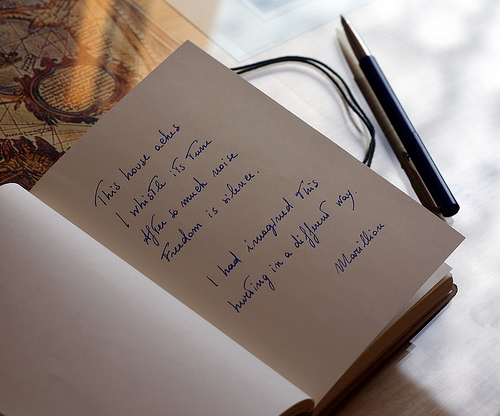 This house aches
I whistle its tune
After so much noise
Freedom is silence.
I had imagined this
hurting in a different way.
Marillion